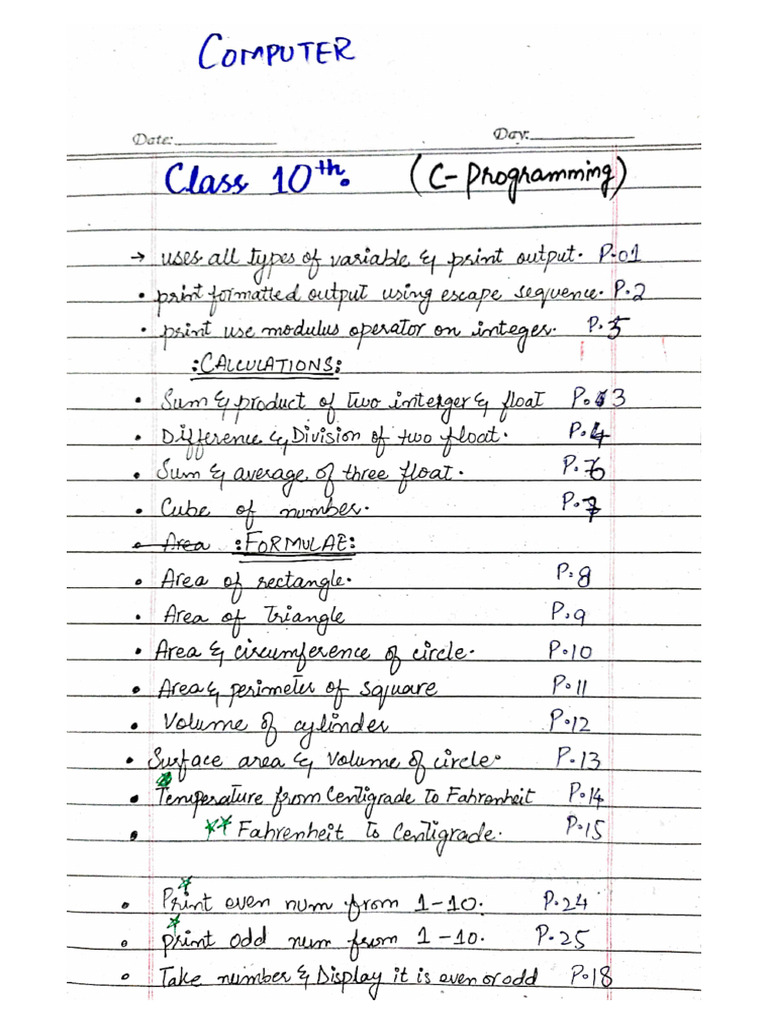 COMPUTER
Date: Day:
Class 10th. (C-Programming)
→ uses all types of variable & print output. P.01
• print formatted output using escape sequence. P.2
• print use modulus operator on integer. P.5
:CALCULATIONS:
• Sum & product of two interger & float P.3
• Difference & Division of two float. P.4
• Sum & average of three float. P.6
• Cube of number. P.7
• Area :FORMULAE:
• Area of rectangle. P.8
• Area of Triangle P.9
• Area & circumference of circle. P.10
• Area & perimeter of square P.11
• Volume of cylinder P.12
• Surface area & Volume of circle. P.13
• Temperature from Centigrade to Fahrenheit P.14
• Fahrenheit to Centigrade. P.15
• Print even num from 1-10. P.24
• print odd num from 1-10. P.25
• Take number & Display it is even or odd P.18